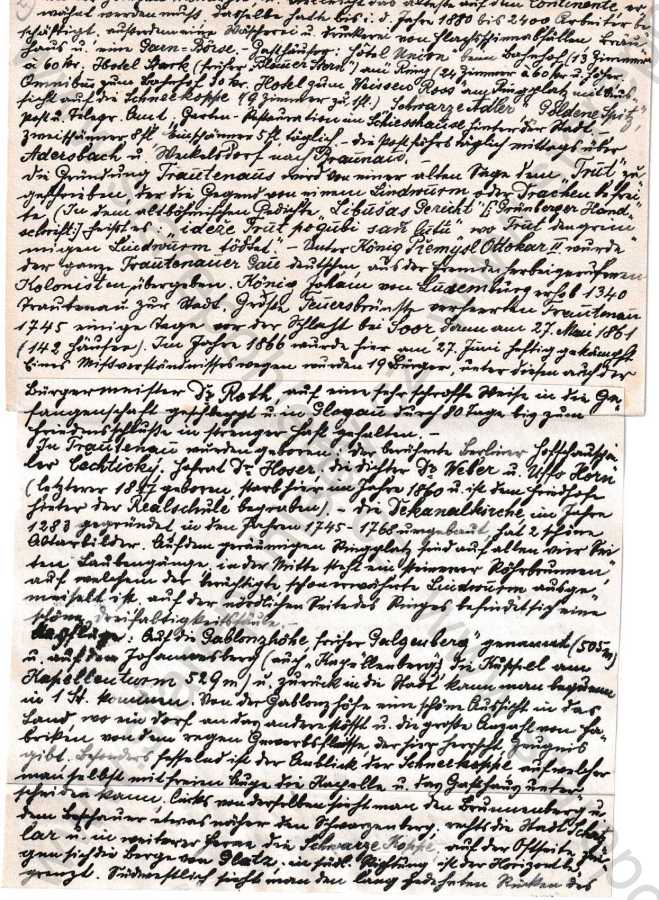 wähnt werden muß, dasselbe hatte bis i. d. Jahre 1880 bis 2400 Arbeiter be
schäftigt, außerdem eine Wäscherei u. Druckerei von Flachsschinabfällen, Bräu
haus u. eine Garn-Börse. Gasthäuser: Hôtel Union beim Bahnhof (13 Zimmer
à 60 kr. Hotel Stark (früher "Blauer Stern") am Ring (24 Zimmer à 60 kr u. höher,
Omnibus zum Bahnhof 20 kr. Hotel zum Weissen Ross am Ringplatz mit Aus
sicht auf die Schneekoppe 19 Zimmer zu 1 fl.) Schwarze Adler, Goldene Spitz,
Post u. Telegr. Amt. Garten-Restauration im Schiesshause hinter der Stadt,
zweispänner 8 fl. einspänner 5 fl. täglich, die Post fährt täglich mittags über
Adersbach u. Weckelsdorf nach Braunau,
die Gründung Trautenaus wird von einer alten Sage dem "Trut" zu
geschrieben, der die Gegend von einem Lindwurm oder Drachen befrei
te. (In dem altböhmischen Gedichte "Libušas Gericht" (: Grünberger Hand
schrift:) heißt es: "ideze Trut pogubi sań lutú", wo Trut den grim
migen Lindwurm tödtet." – Unter König Přemysl Ottokar II wurde
der ganze Trautenauer Gau deutschen, aus der Fremde herbeigerufenen
Kolonisten übergeben. König Johann von Luxemburg erhob 1340
Trautenau zur Stadt. Große Feuersbrünste verheerten Trautenau
1745 einige Tage vor der Schlacht bei Soor, dann am 27. Mai 1861
(142 Häuser). Im Jahre 1866 wurde hier am 27. Juni heftig gekämpft.
Eines Missverständnisses wegen wurden 19 Bürger, unter diesen auch der
Bürgermeister Dr. Roth, auf eine sehr schroffe Weise in die Ge-
fangenschaft geschleppt u. in Glogau durch 80 Tage bis zum
Friedensschluße in strenger Haft gehalten. –
In Trautenau wurden geboren: der berühmte Berliner Hofschauspie
ler Hofrat Dr. Hoser, die Dichter Dr. Weber u. Uffo Horn
(letzterer geboren, starb hier im Jahre 1860 u. ist am Friedhofe
hinter der Realschule begraben). – die Dekanalkirche, im Jahre
1283 gegründet, in den Jahren 1745 – 1768 umgebaut, hat 2 schöne
Altarbilder. Auf dem geräumigen Ringplatz sind auf allen vier Sei
ten Laubengänge, in der Mitte steht ein steinerner Röhrbrunnen,
auf welchem der berüchtigte, schonerwähnte Lindwurm ausge-
meißelt ist, auf der nördlichen Seite des Ringes befindet sich eine
schöne Dreifaltigkeitssäule. –
Ausflüge: Auf die Gablonzhöhe, früher "Galgenberg" genannt (505 m)
u. auf den Johannesberg (auch Kapellenberg; die Kuppel am
Kapellenturm 529 m) u. zurück in die Stadt kann man bequem
in 1 St. kommen. Von der Gablonzhöhe eine schöne Aussicht in das
Land, wo ein Dorf an das andere stößt u. die große Anzahl von Fa-
briken von dem regen Gewerbsfleiße, der hier herrscht, Zeugnis
gibt. Besonders fesselnd ist der Anblick der Schneekoppe, auf welcher
man selbst mit freiem Auge die Kapelle u. das Gasthaus unter
scheiden kann. Links von derselben sieht man den Brunnenberg u.
dem Beschauer etwas näher den Schwarzenberg, rechts die Stadt Schatz
lar u. in weiterer Ferne die Schwarze Koppe, auf der Ostseite zei
gen sich die Berge von Glatz, in südl. Richtung ist der Horizont be
grenzt. Südwestlich sieht man den lang gedehnten Rücken des